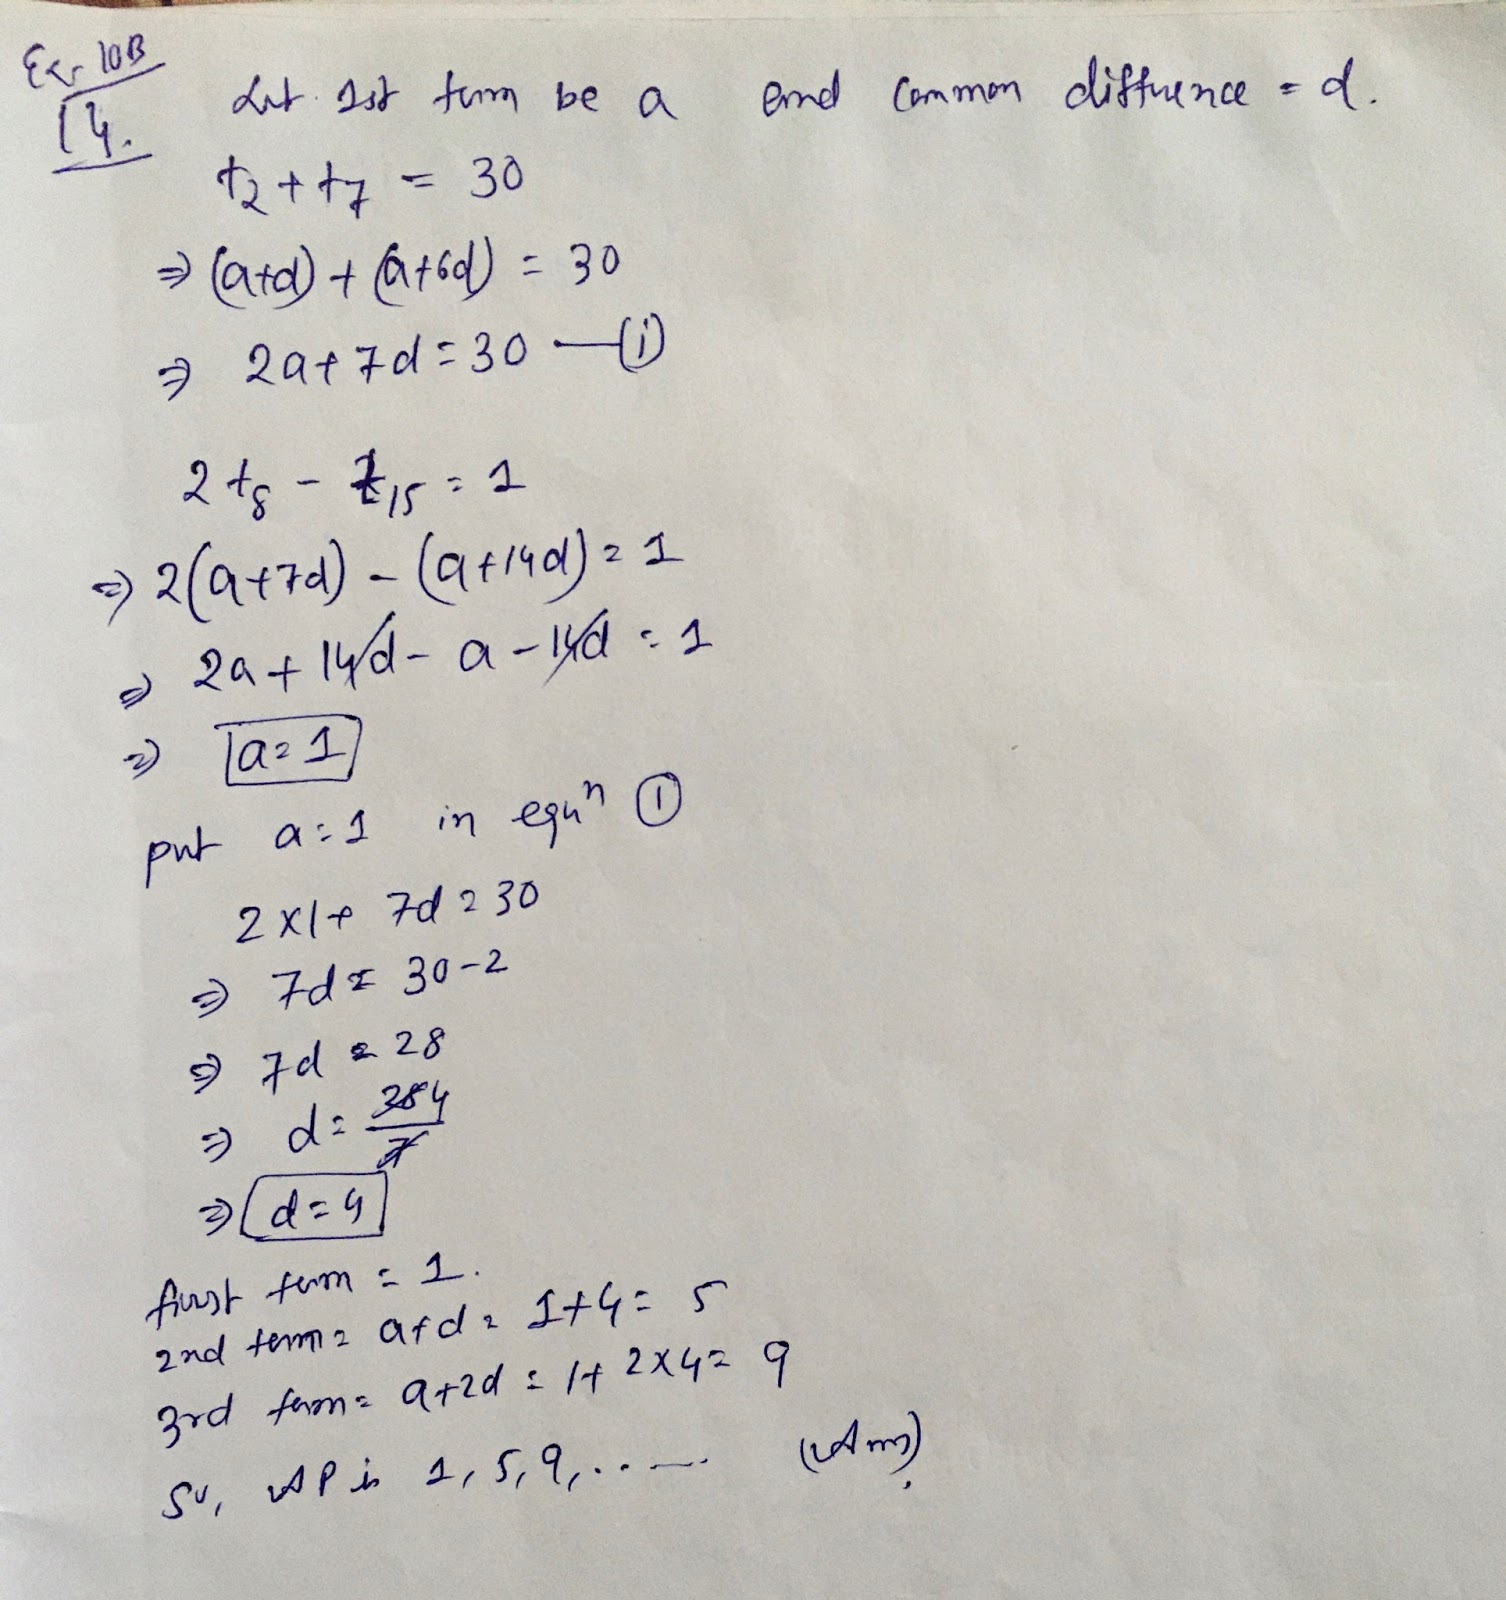 Ex-10B
14.
Let 1st term be a and common difference = d.
t₂ + t₇ = 30
⇒ (a+d) + (a+6d) = 30
⇒ 2a+7d = 30 —(i)
2t₈ - t₁₅ = 1
⇒ 2(a+7d) - (a+14d) = 1
⇒ 2a + 14d - a - 14d = 1
⇒ a = 1
put a = 1 in equⁿ ①
2×1+ 7d = 30
⇒ 7d = 30-2
⇒ 7d = 28
⇒ d = 28 4 / 7
⇒ d = 4
first term = 1.
2nd term = a+d = 1+4 = 5
3rd term = a+2d = 1+ 2×4 = 9
So, AP is 1, 5, 9, ...... (Ans)